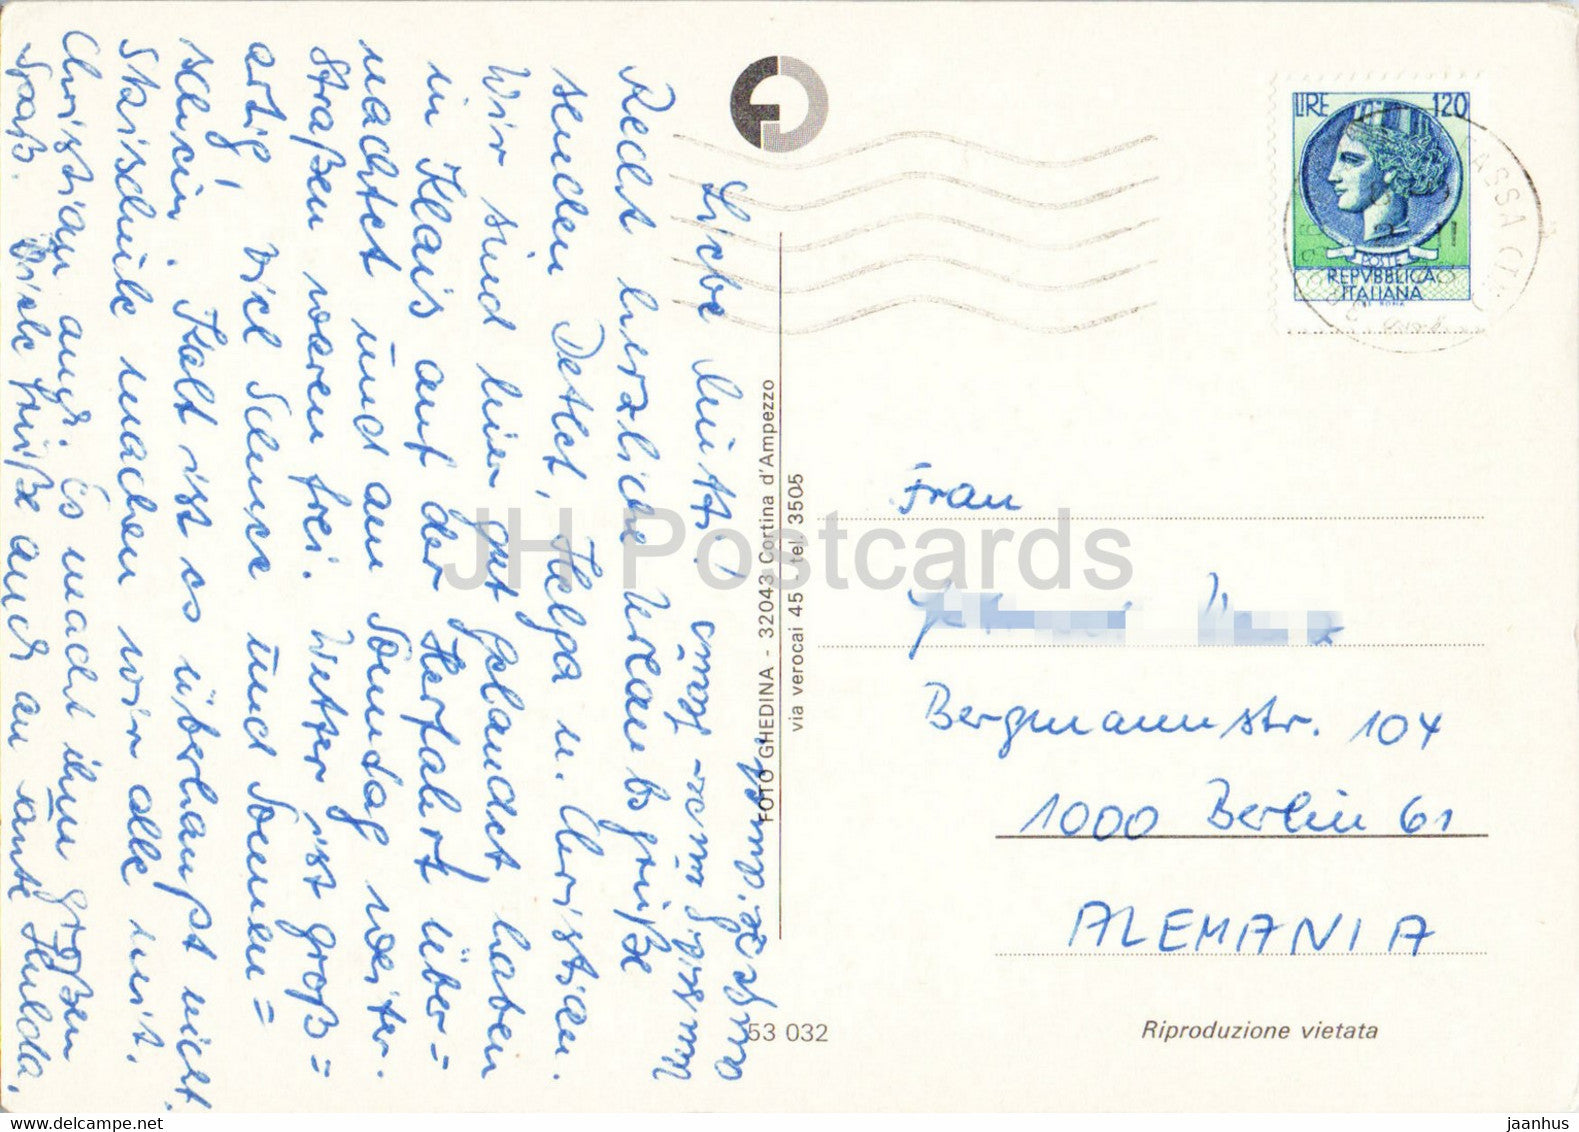 Liebe Mutti!
Recht herzliche Urlaubsgrüße
senden Detlef, Helga u. Christian.
Wir sind hier gut gelandet, haben
in Klais auf der Herfahrt über=
nachtet und am Sonntag weiter.
Straßen waren frei. Wetter ist groß=
artig, viel Schnee und Sonnen=
schein. Kalt ist es überhaupt nicht.
Skischule machen wir alle mit.
Christian auch. Es macht ihm großen
Spaß. Viele Grüße auch an Tante Hulda.
FOTO GHEDINA - 32043 Cortina d'Ampezzo
via verocai 45 - tel. 3505
LIRE 120
POSTE
REPVBBLICA
ITALIANA
Frau
Bergmannstr. 104
1000 Berlin 61
ALEMANIA
53 032
Riproduzione vietata
JH Postcards
https://jhpostcards.com
jaanhus